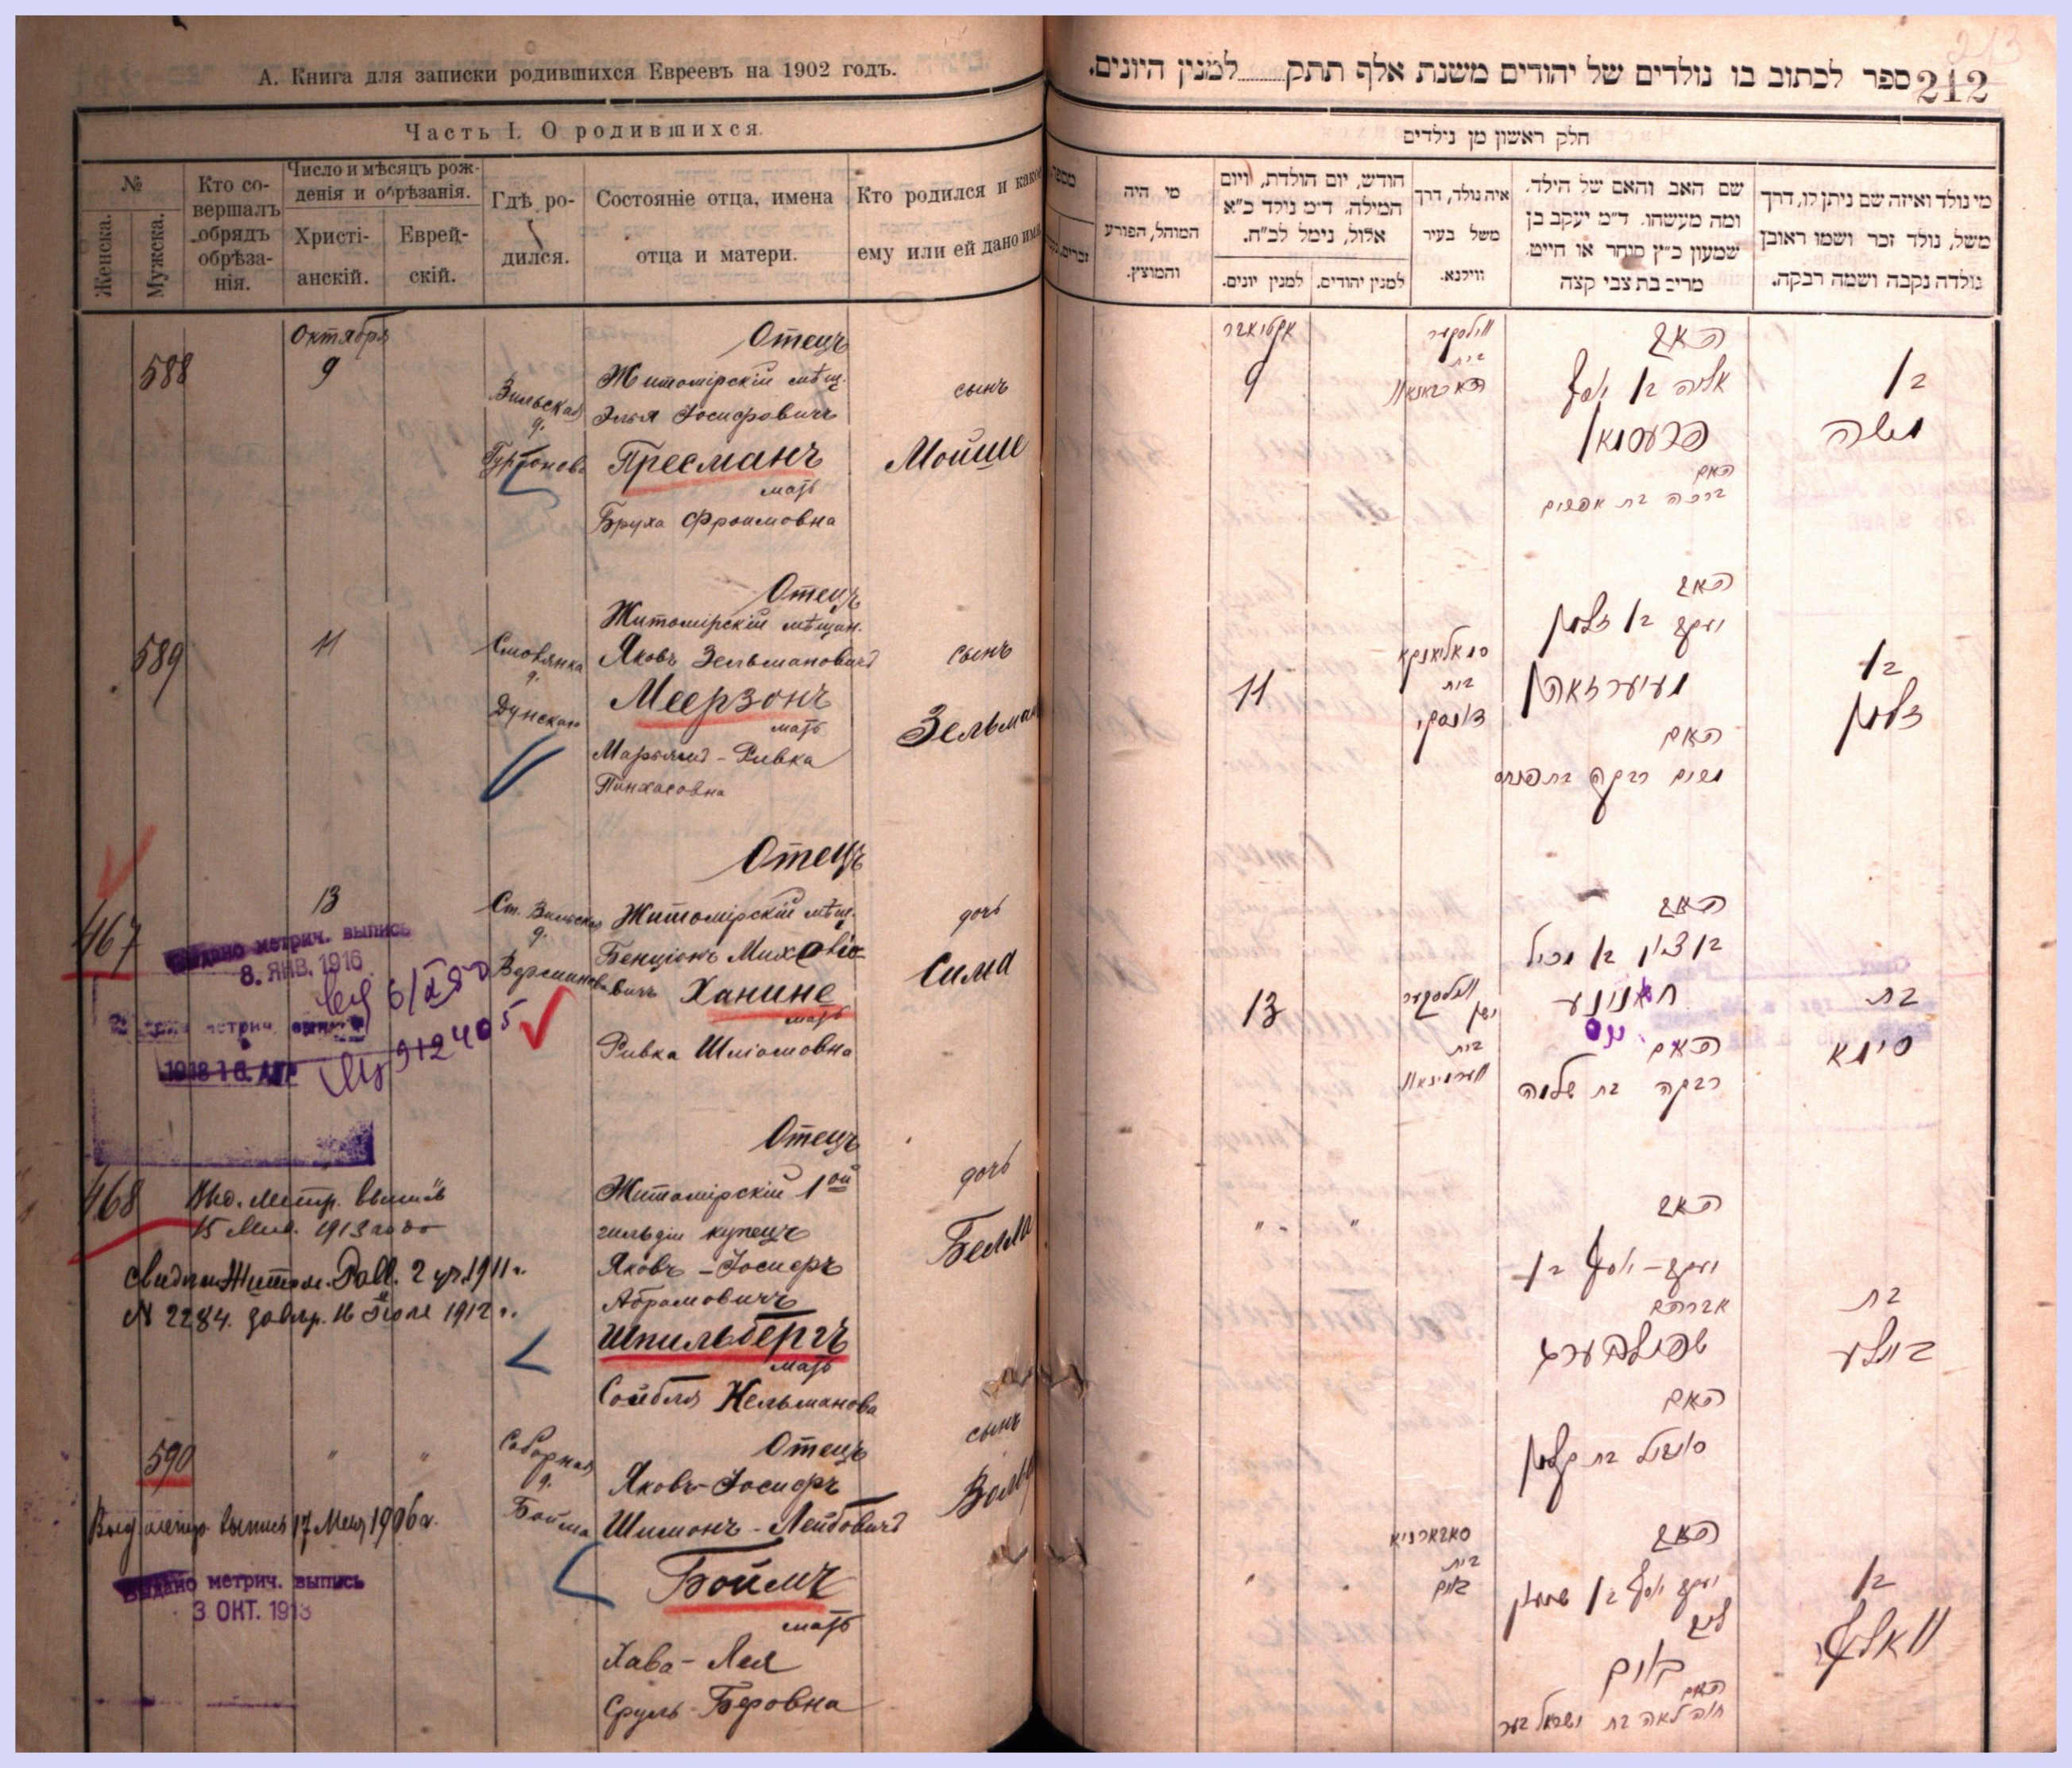 А. Книга для записки родившихся Евреевъ на 1902 годъ.
Часть I. О родившихся.
№
Женска.
Мужска.
Кто со-
вершалъ
обрядъ
обрѣза-
нія.
Число и мѣсяцъ рож-
денія и обрѣзанія.
Христі-
анскій.
Еврей-
скій.
Гдѣ ро-
дился.
Состояніе отца, имена
отца и матери.
Кто родился и какое
ему или ей дано имя.
588
Октября
9
Вильская
д.
Отецъ
Житомірскій мѣщ.
Элья Іосифовичъ
Пресманъ
мать
Бруха Фроимовна
сынъ
Мойше
589
11
д.
Дунская
Отецъ
Житомірскій мѣщан.
Яковъ Зельмановичъ
Меерзонъ
мать
Марьямъ-Ривка
Пинхасовна
сынъ
Зельман
467
13
Ст. Вильская
д.
Отецъ
Житомірскій мѣщ.
Бенціонъ
вичъ Ханине
мать
Ривка Шліомовна
дочь
Сима
Выдано метрич. выпись
8. ЯНВ. 1916
912405
468
15 1913 года
2 1911 г.
N 2284. 16 Іюля 1912 г.
Отецъ
Житомірскій 1ой
гильдіи купецъ
Яковъ-Іосифъ
Абрамовичъ
Шпильбергъ
мать
Сойбля Кельманова
дочь
Белла
590
"
"
Соборная
д.
Бойма
Отецъ
Яковъ-Іосифъ
Шимонъ-Лейбовичъ
Боймъ
мать
Хава-Лея
Сруль-Беровна
сынъ
Вольф
выпись 17 1906 г.
Выдано метрич. выпись
3 ОКТ. 1913
212
ספר לכתוב בו נולדים של יהודים משנת אלף תתק......למנין היונים.
חלק ראשון מן נילדים
מי היה
המוהל, הפורע
והמוצץ.
חודש, יום הולדת, ויום
המילה, ד״מ נילד כ״א
אלול, נימל לכ״ח.
למנין יונים.
למנין יהודים.
איה נולד, דרך
משל בעיר
ווילנא.
שם האב והאם של הילד,
ומה מעשהו. ד״מ יעקב בן
שמעון כ״ץ סוחר או חייט,
מרים בת צבי קצה
מי נולד ואיזה שם ניתן לו, דרך
משל, נולד זכר ושמו ראובן
נולדה נקבה ושמה רבקה.
אקטיאבר
9
ווילסקער
בית
האב
אליה בן יוסף
פרעסמאן
האם
ברכה בת אפרים
בן
משה
11
בית
דונסקי
האב
יעקב בן זלמן
מעיערזאהן
האם
מרים רבקה בת פנחס
בן
זלמן
13
ווילסקער
ישן
בית
האב
בן ציון בן מכיל
חאנינע
האם
רבקה בת שלמה
בת
סימא
" "
האב
יעקב-יוסף בן
אברהם
שפילבערג
האם
סויבל בת קלמן
בת
ביילע
סאבארניא
בית
בוים
האב
יעקב יוסף בן שמעון
ליב
בוים
האם
חוה לאה בת ישראל בער
בן
וואלף